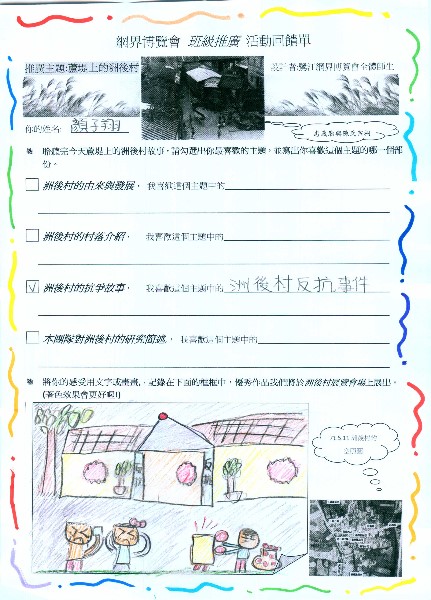 網界博覽會 班級推廣 活動回饋單
推廣主題:蘆堤上的洲後村
設計者:鷺江網界博覽會全體師生
你的姓名: 顏子翔
聆聽完今天蘆堤上的洲後村故事，請勾選出你最喜歡的主題，並寫出你喜歡這個主題的哪一個部份。
洲後村的由來與發展， 我喜歡這個主題中的
洲後村的村落介紹， 我喜歡這個主題中的
洲後村的抗爭故事， 我喜歡這個主題中的 洲後村反抗事件
本團隊對洲後村的研究簡述， 我喜歡這個主題中的
將你的感受用文字或畫畫，記錄在下面的框框中，優秀作品我們將於洲後村展覽會場上展出。
(著色效果會更好喔!)